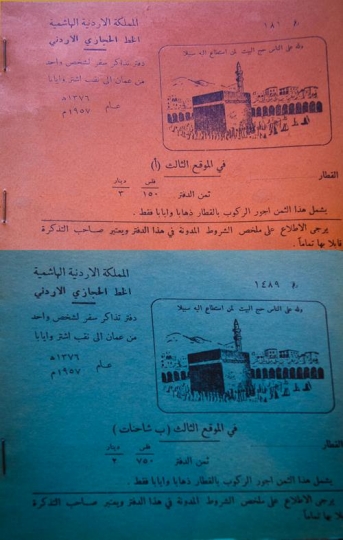 المملكة الاردنية الهاشمية
الخط الحجازي الاردني
دفتر تذاكر سفر لشخص واحد
من عمان الى نقب اشتر وايابا
١٣٧٦ ه
عام
١٩٥٧ م
١٨١
ولله على الناس حج البيت من استطاع اليه سبيلا
القطار
في الموقع الثالث (أ)
فلس دينار
ثمن الدفتر ١٥٠ ٣
يشمل هذا الثمن اجور الركوب بالقطار ذهابا وايابا فقط .
يرجى الاطلاع على ملخص الشروط المدونة في هذا الدفتر ويعتبر صاحب التذكرة
قابلا بها تماماً .
المملكة الاردنية الهاشمية
الخط الحجازي الاردني
دفتر تذاكر سفر لشخص واحد
من عمان الى نقب اشتر وايابا
١٣٧٦ ه
عام
١٩٥٧ م
١٤٨٩
ولله على الناس حج البيت من استطاع اليه سبيلا
القطار
في الموقع الثالث ( ب شاحنات )
فلس دينار
ثمن الدفتر ٧٥٠ ٢
يشمل هذا الثمن اجور الركوب بالقطار ذهابا وايابا فقط .
يرجى الاطلاع على ملخص الشروط المدونة في هذا الدفتر ويعتبر صاحب التذكرة
بها تماماً